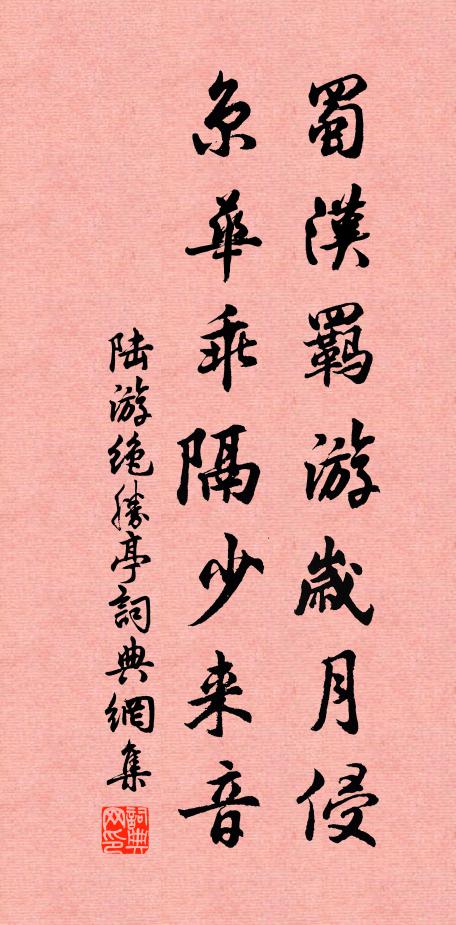 蜀漢羇游歲月侵
京華乖隔少来音
陆游绝勝亭詞典網集
詞典网印